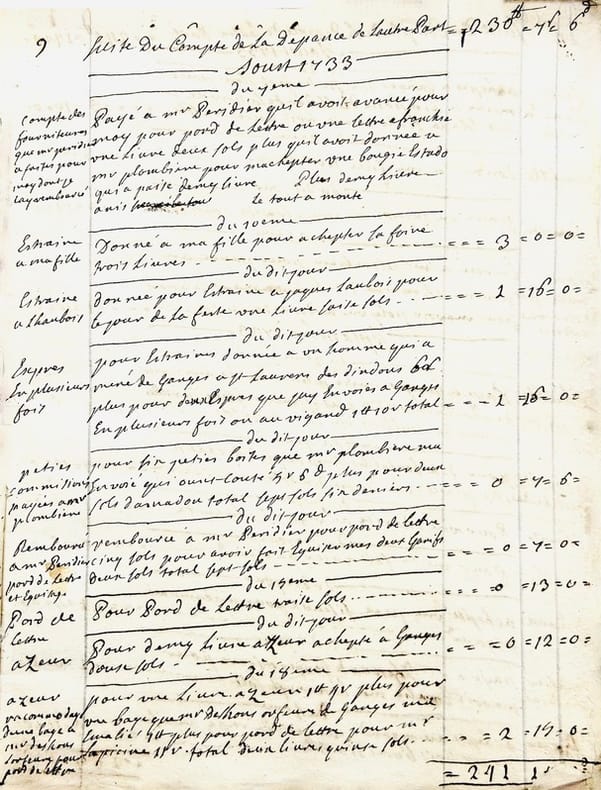 9 Suite Du Compte de La Depance de Lautre Part = 230 ₶ = 7 s = 6 d
Aoust 1733
du 7eme
compte des
fourniteures
que mr peridie
a faites pour
moy dont je
Lay remboursé
Payé a mr Peridier quil avoit avancé pour
moy pour pord de Lettre ou vne lettre afranchie
vne Livre deux sols plus quil avoit donnée a
mr plombiere pour machepter vne bougie
qui a paise demy livre Plus demy Livre
anis Le tout a monté
du 10eme
Estraine
a ma fille
Donné a ma fille pour achepter la foire
trois Livres = 3 = 0 = 0 =
du dit jour
Estraine
a Lhaubois
donneé pour Estraine a jaques Laubois pour
le jour de La feste vne Livre saise sols = 1 = 16 = 0 =
du dit jour
Expres
En plusieurs
fois
pour Estraines donnée a vn homme qui a
mené de Ganges a st Laurens des dindons 6 s
plus pour Expres que jay Envoiés a Ganges
En plusieurs fois ou au vigand 1 ₶ 10 s total = 1 = 16 = 0 =
du dit jour
peties
commitions
payées a mr
plombiere
pour six peties boites que mr plombiere ma
Envoié qui ount Couté 5 s 6 d plus pour deux
sols damadou total sept sols six deniers = 0 = 7 = 6 =
du dit jour
Remboursé
a mr Peridier
pord de Lettre
et
rembourcé a mr Peridier pour pord de lettre
cinq sols pour avoir fait Eguiser mes deux Ganifs
deux sols total sept sols = 0 = 7 = 0 =
du 15eme
Pord de
lettre
Pour Pord de Lettre traise sols = 0 = 13 = 0 =
du dit jour
azeur
Pour demy Livre azeur achepté à Ganges
douse sols = 0 = 12 = 0 =
du 18eme
azeur
racommodage
dune bage a
mr deshons
orfeuvre pour
pord de lettre
pour vne Livre azeur 1 ₶ 4 s plus pour
vne bage que mr deshons orfeuvre de Ganges
1 ₶ plus pour pord de lettre pour mr
Lapicine 11 s total deux livres quinse sols = 2 = 15 = 0 =
= 241